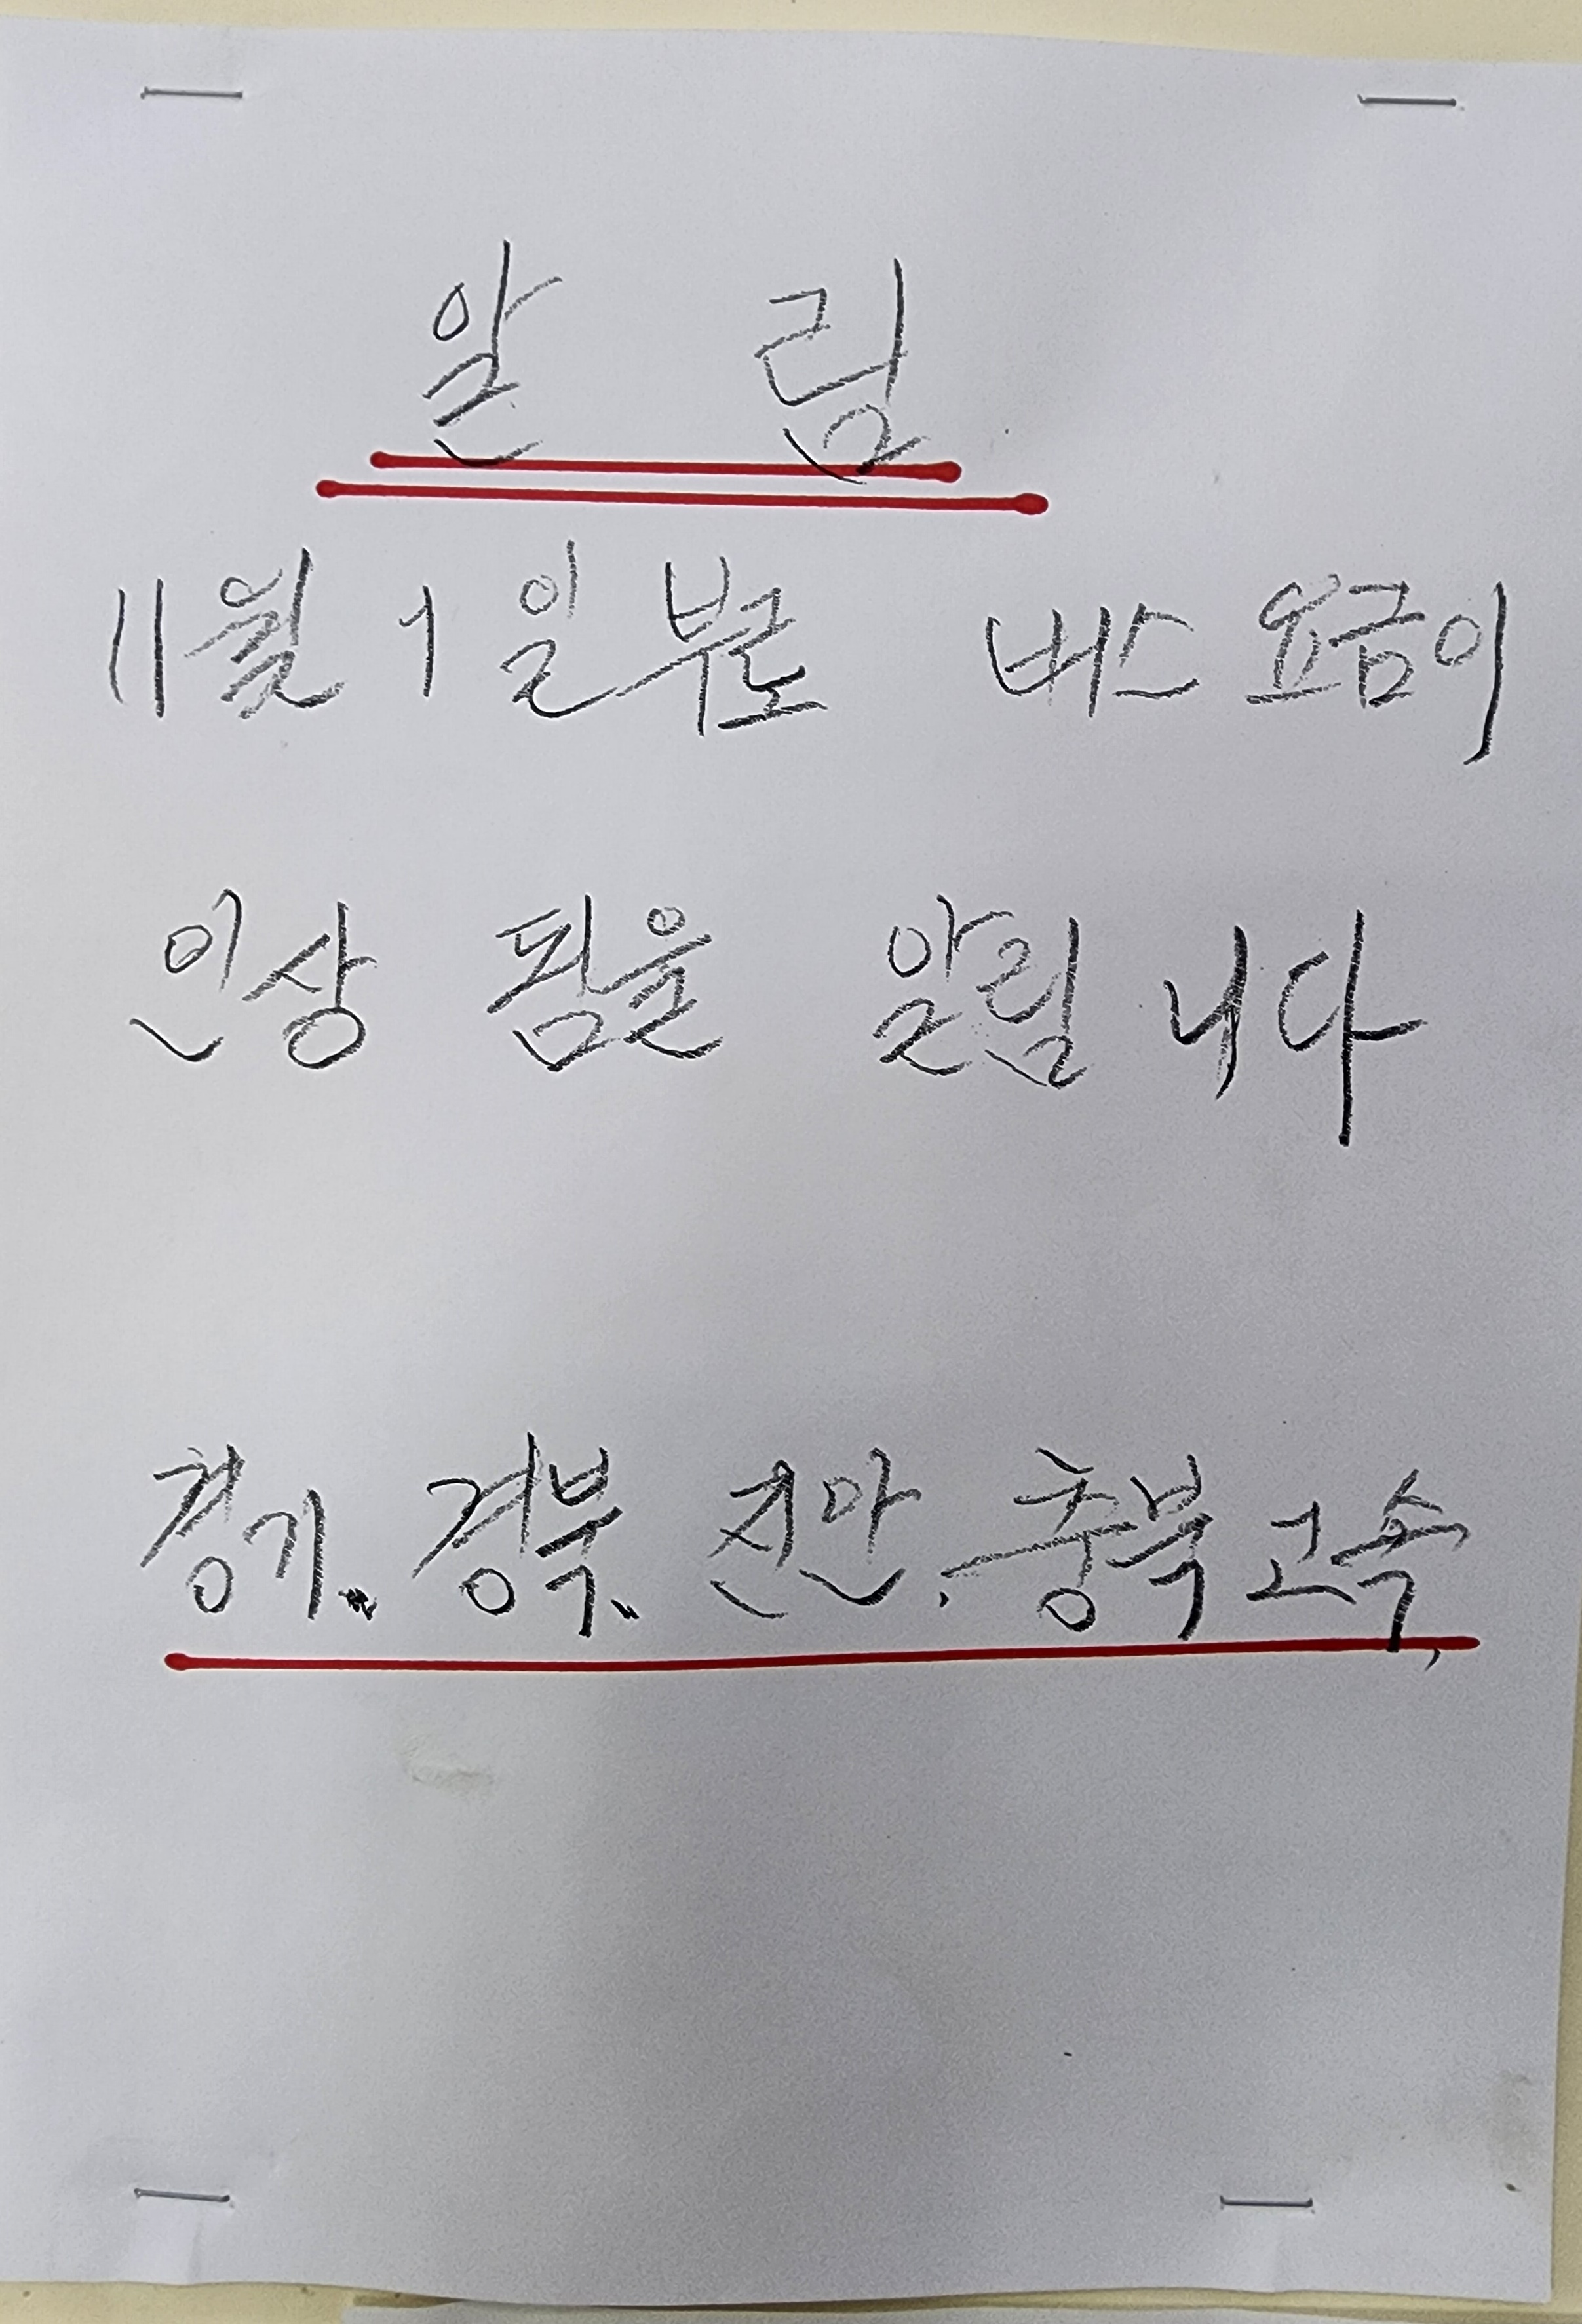 알 림
11월 1일부로 버스 요금이
인상 됨을 알립니다
경기.. 경북.. 진안. 충북고속